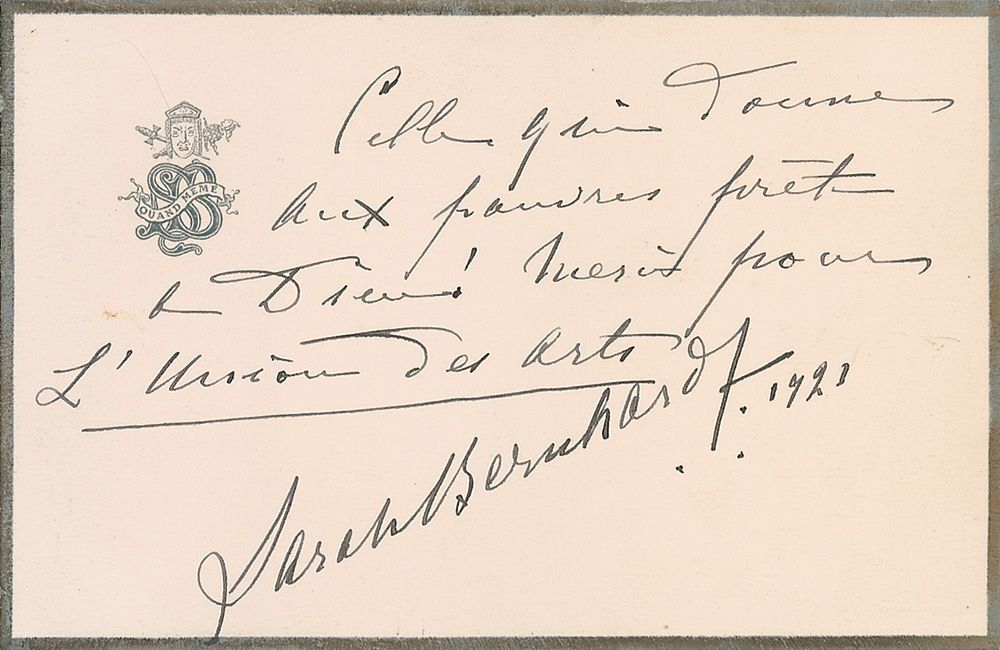 QUAND MÊME
Celle qui donne
aux pauvres prête
a Dieu! Merci pour
L'Union des Arts
Sarah Bernhardt. 1921